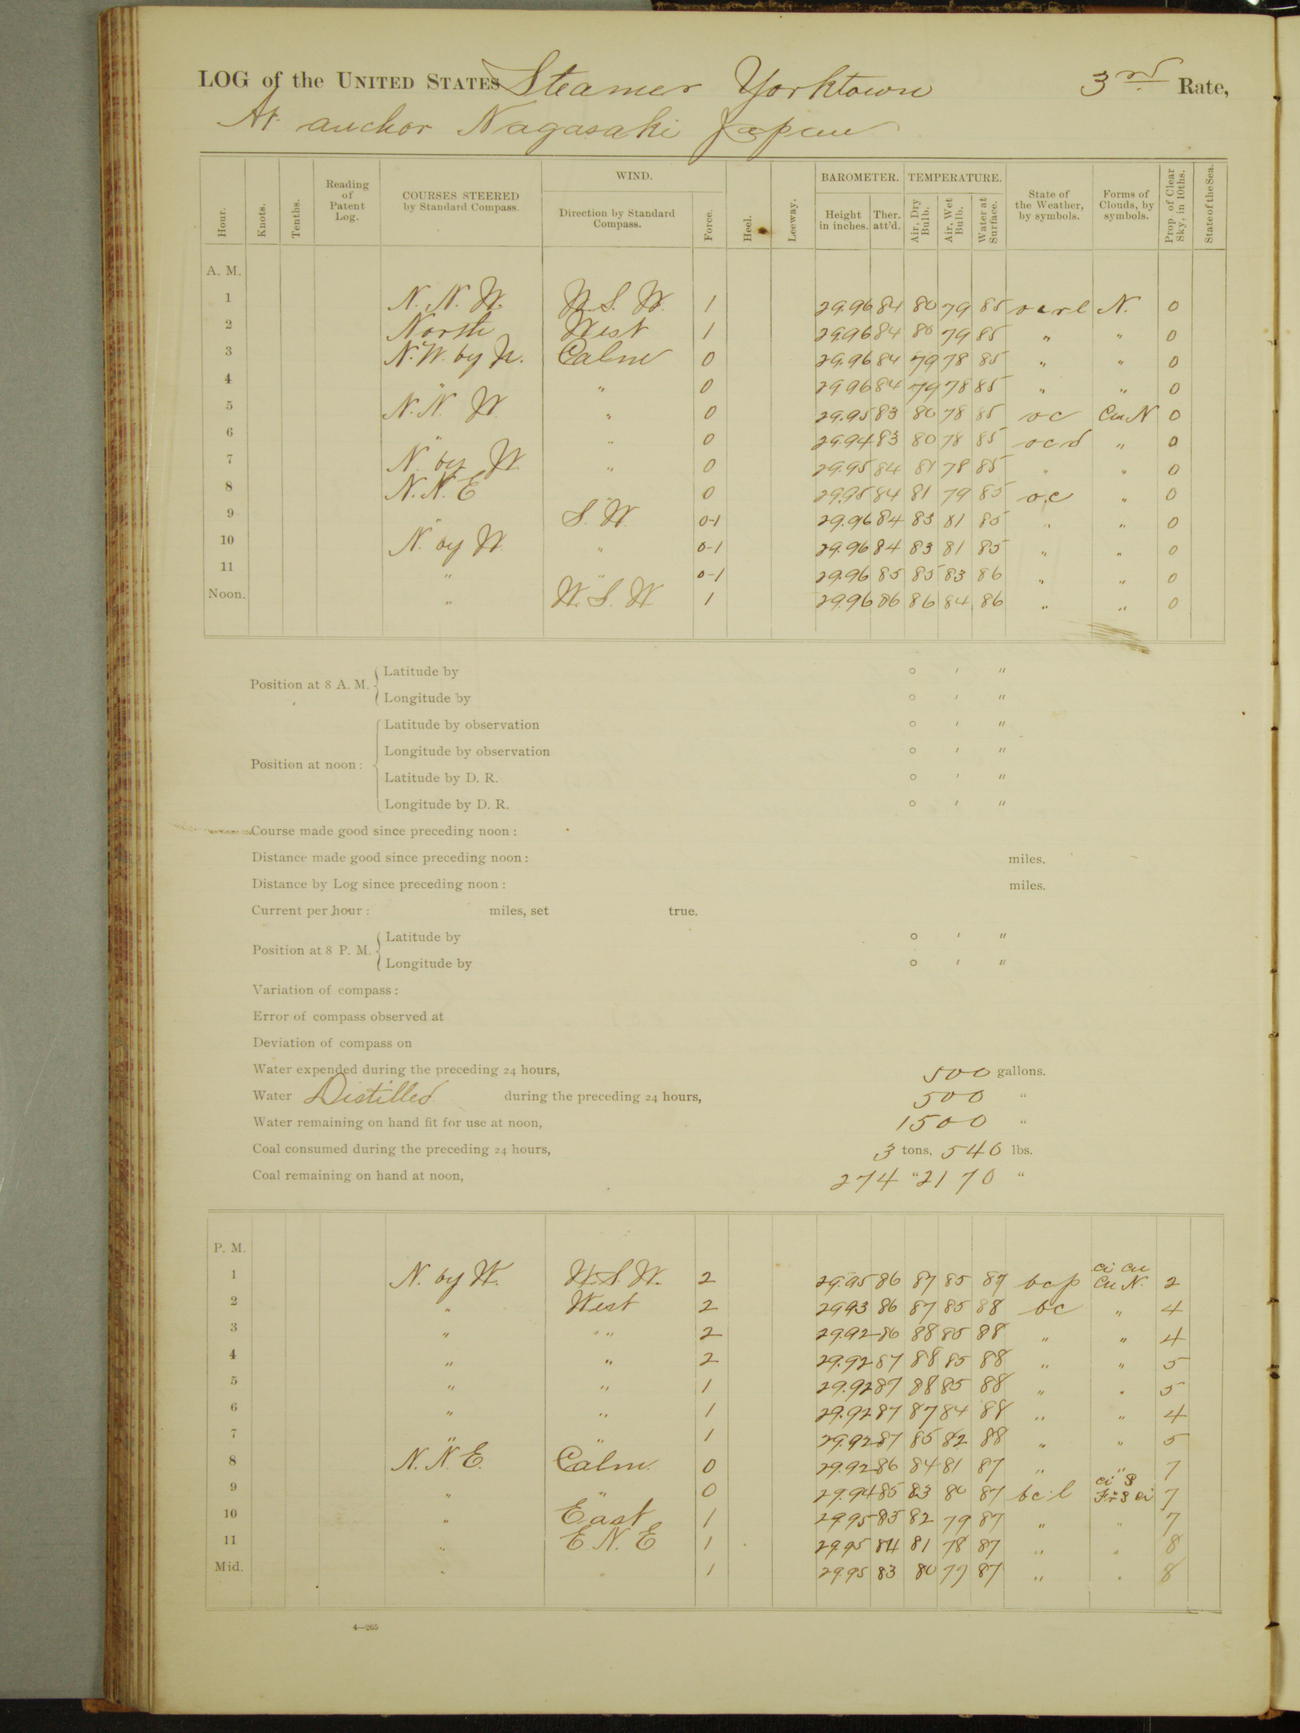 LOG of the UNITED STATES Steamer Yorktown 3rd Rate,
At anchor Nagasaki Japan
Hour. Knots. Tenths. Reading of Patent Log. COURSES STEERED by Standard Compass. WIND. Direction by Standard Compass. Force. Heel. Leeway. BAROMETER. Height in inches. Ther. att'd. TEMPERATURE. Air, Dry Bulb. Air, Wet Bulb. Water at Surface. State of the Weather, by symbols. Forms of Clouds, by symbols. Prop. of Clear Sky, in 10ths. State of the Sea.
A. M.
1 N. N. W. W. S. W. 1 29.96 84 80 79 85 ocrl N. 0
2 North West 1 29.96 84 80 79 85 " " 0
3 N. W. by N. Calm 0 29.96 84 79 78 85 " " 0
4 " " 0 29.96 84 79 78 85 " " 0
5 N. N. W. " 0 29.95 83 80 78 85 oc Cu N 0
6 " " 0 29.94 83 80 78 85 ocd " 0
7 N. by W. " 0 29.95 84 81 78 85 " " 0
8 N. N. E. 0 29.95 84 81 79 85 o.c " 0
9 " S. W. 0-1 29.96 84 83 81 85 " " 0
10 N. by W. " 0-1 29.96 84 83 81 85 " " 0
11 " " 0-1 29.96 85 85 83 86 " " 0
Noon. " W. S. W. 1 29.96 86 86 84 86 " " 0
Position at 8 A. M. Latitude by ° ′ ″
Longitude by ° ′ ″
Position at noon: Latitude by observation ° ′ ″
Longitude by observation ° ′ ″
Latitude by D. R. ° ′ ″
Longitude by D. R. ° ′ ″
Course made good since preceding noon:
Distance made good since preceding noon: miles.
Distance by Log since preceding noon: miles.
Current per hour: miles, set true.
Position at 8 P. M. Latitude by ° ′ ″
Longitude by ° ′ ″
Variation of compass:
Error of compass observed at
Deviation of compass on
Water expended during the preceding 24 hours, 500 gallons.
Water Distilled during the preceding 24 hours, 500 "
Water remaining on hand fit for use at noon, 1500 "
Coal consumed during the preceding 24 hours, 3 tons, 540 lbs.
Coal remaining on hand at noon, 274 " 2170 "
P. M.
1 N. by W. W. S. W. 2 29.95 86 87 85 87 bcp ci cu Cu N. 2
2 " West 2 29.93 86 87 85 88 bc " 4
3 " " " 2 29.92 86 88 85 88 " " 4
4 " " 2 29.92 87 88 85 88 " " 5
5 " " 1 29.92 87 88 85 88 " " 5
6 " " 1 29.92 87 87 84 88 " " 4
7 " " 1 29.92 87 85 82 88 " " 5
8 N. N. E. Calm 0 29.92 86 84 81 87 " " 7
9 " " 0 29.94 85 83 80 87 bc.l ci S 7
10 " East 1 29.95 85 82 79 87 " " 7
11 " E. N. E 1 29.95 84 81 78 87 " " 8
Mid. " " 1 29.95 83 80 77 87 " " 8
4—265